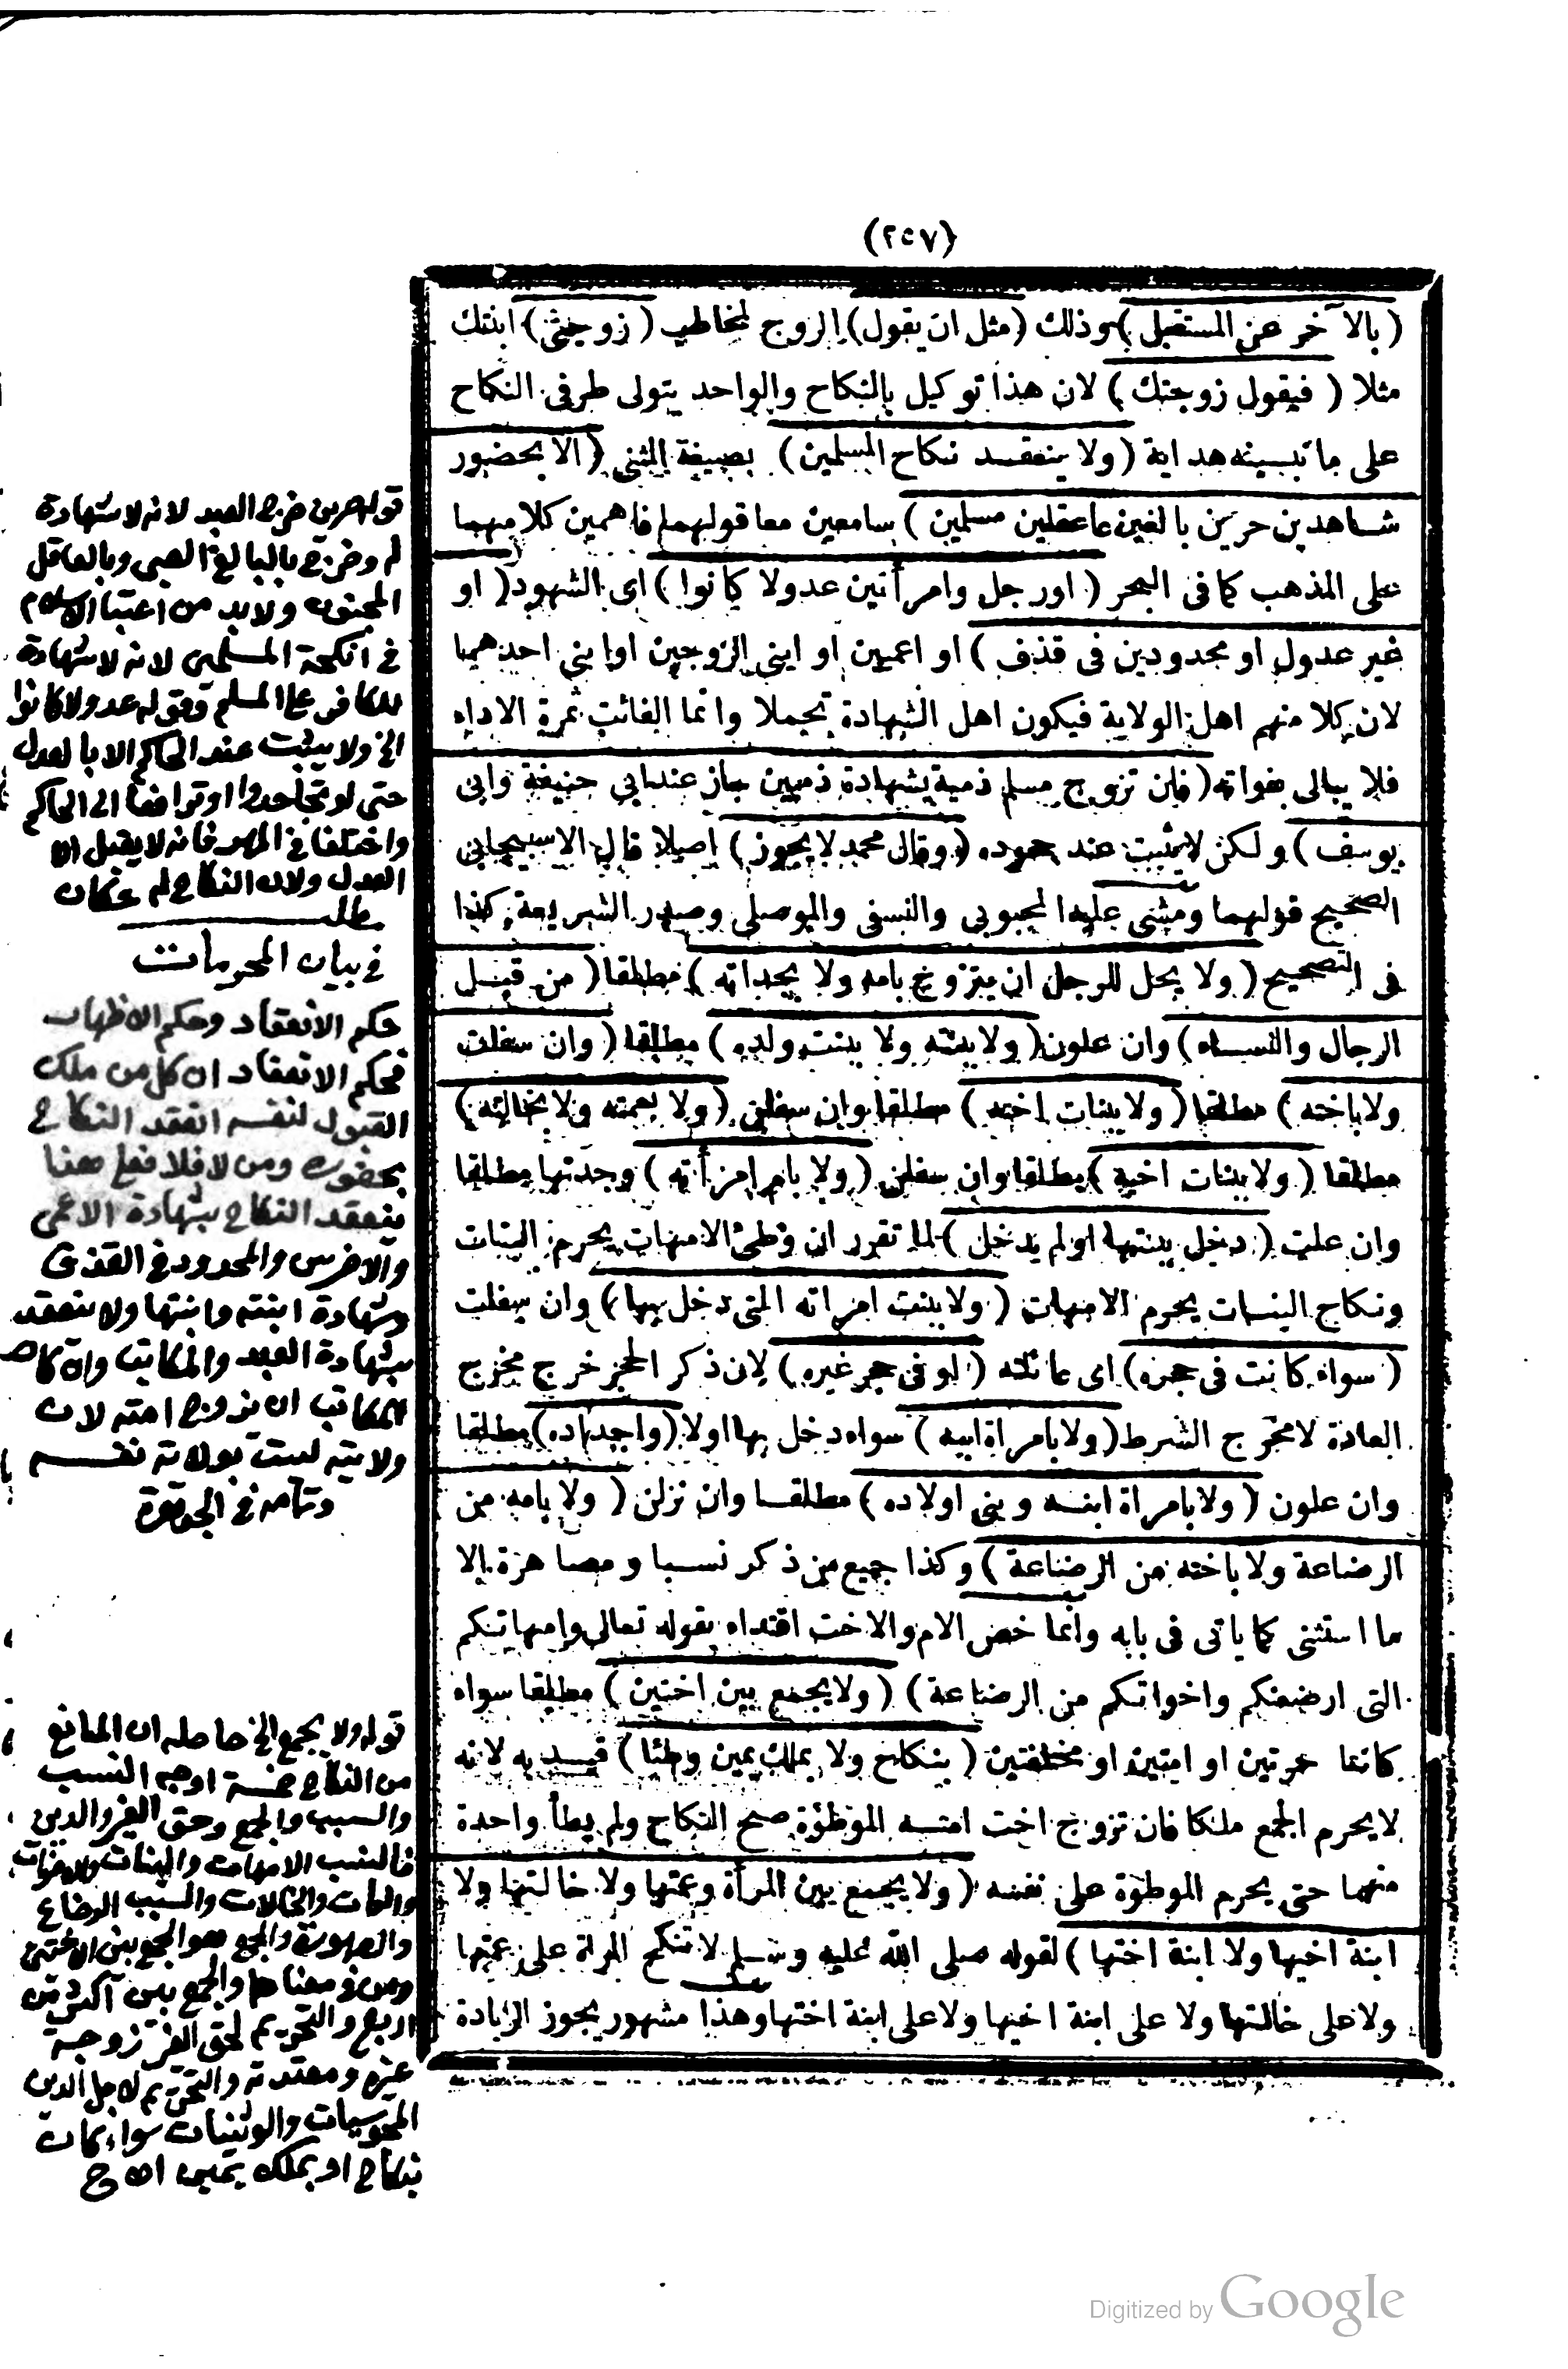 (٢٥٧)
( بالآخر عن المستقبل ) وذلك ( مثل ان يقول ) الزوج للمخاطب ( زوجنى ) ابنتك
مثلا ( فيقول زوجتك ) لان هذا توكيل بالنكاح والواحد يتولى طرفى النكاح
على ما نبينه هداية ( ولا ينعقد نكاح المسلمين ) بصيغة المثنى ( الا بحضور
شاهدين حرين بالغين عاقلين مسلمين ) سامعين معا قولهما فاهمين كلامهما
على المذهب كما فى البحر ( او رجل وامرأتين عدولا كانوا ) اى الشهود ( او
غير عدول او محدودين فى قذف ) او اعميين او ابنى الزوجين او ابنى احدهما
لان كلا منهم اهل الولاية فيكون اهل الشهادة تحملا وانما الفائت ثمرة الاداء
فلا يبالى بفواته ( فان تزوج مسلم ذمية بشهادة ذميين جاز عند ابى حنيفة وابى
يوسف ) ولكن لا يثبت عند جحوده ( وقال محمد لا يجوز ) اصلا قال الاسبيجابى
الصحيح قولهما ومشى عليه المحبوبى والنسفى والموصلى وصدر الشريعة كذا
فى التصحيح ( ولا يحل للرجل ان يتزوج بامه ولا بجداته ) مطلقا ( من قبل
الرجال والنساء ) وان علون ( ولا ببنته ولا ببنت ولده ) مطلقا ( وان سفلت
ولا باخته ) مطلقا ( ولا ببنات اخته ) مطلقا وان سفلن ( ولا بعمته ولا بخالته )
مطلقا ( ولا ببنات اخيه ) مطلقا وان سفلن ( ولا بام امرأته ) وجدتها مطلقا
وان علت ( دخل ببنتها او لم يدخل ) لما تقرر ان وطئ الامهات يحرم البنات
ونكاح البنات يحرم الامهات ( ولا ببنت امراته التى دخل بها ) وان سفلت
( سواء كانت فى حجره ) اى عائلته ( او فى حجر غيره ) لان ذكر الحجر خرج مخرج
العادة لا مخرج الشرط ( ولا بامراة ابيه ) سواء دخل بها اولا ( واجداده ) مطلقا
وان علون ( ولا بامراة ابنه وبنى اولاده ) مطلقا وان نزلن ( ولا بامه من
الرضاعة ولا باخته من الرضاعة ) وكذا جميع من ذكر نسبا ومصاهرة الا
ما استثنى كما ياتى فى بابه وانما خص الام والاخت اقتداء بقوله تعالى وامهاتكم
التى ارضعنكم واخواتكم من الرضاعة ) ( ولا يجمع بين اختين ) مطلقا سواء
كانتا حرتين او امتين او مختلفتين ( بنكاح ولا بملك يمين وطئا ) قيد به لانه
لا يحرم الجمع ملكا فان تزوج اخت امته الموطؤة صح النكاح ولم يطأ واحدة
منهما حتى يحرم الموطؤة على نفسه ( ولا يجمع بين المرأة وعمتها ولا خالتها ولا
ابنة اخيها ولا ابنة اختها ) لقوله صلى الله عليه وسلم لا تنكح المراة على عمتها
ولا على خالتها ولا على ابنة اخيها ولا على ابنة اختها وهذا مشهور يجوز الزيادة
قوله حرين خرج العبد لانه لا شهادة
له وخرج بالبالغ الصبى وبالعاقل
المجنون ولا بد من اعتبار الاسلام
فى انكحة المسلمين لانه لا شهادة
للكافر على المسلم وقوله عدولا كانوا
الخ ولا يثبت عند الحاكم الا بالعدل
حتى لو تجاحدوا او ترافعا الى الحاكم
واختلفا فى المهر فانه لا يقبل الا
العدل ولان النكاح له حكمان
مطلب
فى بيان المحرمات
حكم الانعقاد وحكم الاظهار
فحكم الانعقاد ان كل من ملك
القبول لنفسه انعقد النكاح
بحضوره ومن لا فلا فعلى هذا
ينعقد النكاح بشهادة الاعمى
والاخرس والمحدود فى القذف
وشهادة ابنته وابنتها ولا ينعقد
بشهادة العبد والمكاتب وان كان
للمكاتب ان يزوج امته لان
ولايته ليست بولاية نفسه
وتمامه فى الجوهرة
قوله ولا يجمع الخ حاصله ان المانع
من النكاح خمسة اوجه النسب
والسبب والجمع وحق الغير والدين
فالنسب الامهات والبنات والاخوات
والعمات والخالات والسبب الرضاع
والصهورة والجمع هو الجمع بين الاختين
ومن فى معناها والجمع بين اكثر من
اربع والتحريم لحق الغير زوجة
غيره ومعتدته والتحريم لاجل الدين
المجوسيات والوثنيات سواء كان
بنكاح او بملك يمين اه ج
Digitized by Google